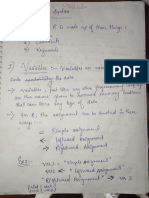 Syntax
R is made up of three things :-
Variables
Comments
Keywords
1) Variables :- Variables are
the data
→ Variables, just like any other programming
are the name given to reserved memory locations
that can store any type of data.
→ In R, the assignment can be denoted in three
ways :-
= Simple assignment
← Leftward assignment
→ Rightward assignment
Ex:-
var1 = "Simple Assignment"
var2 ← "Leftward Assignment"
"Rightward Assignment" → var 3